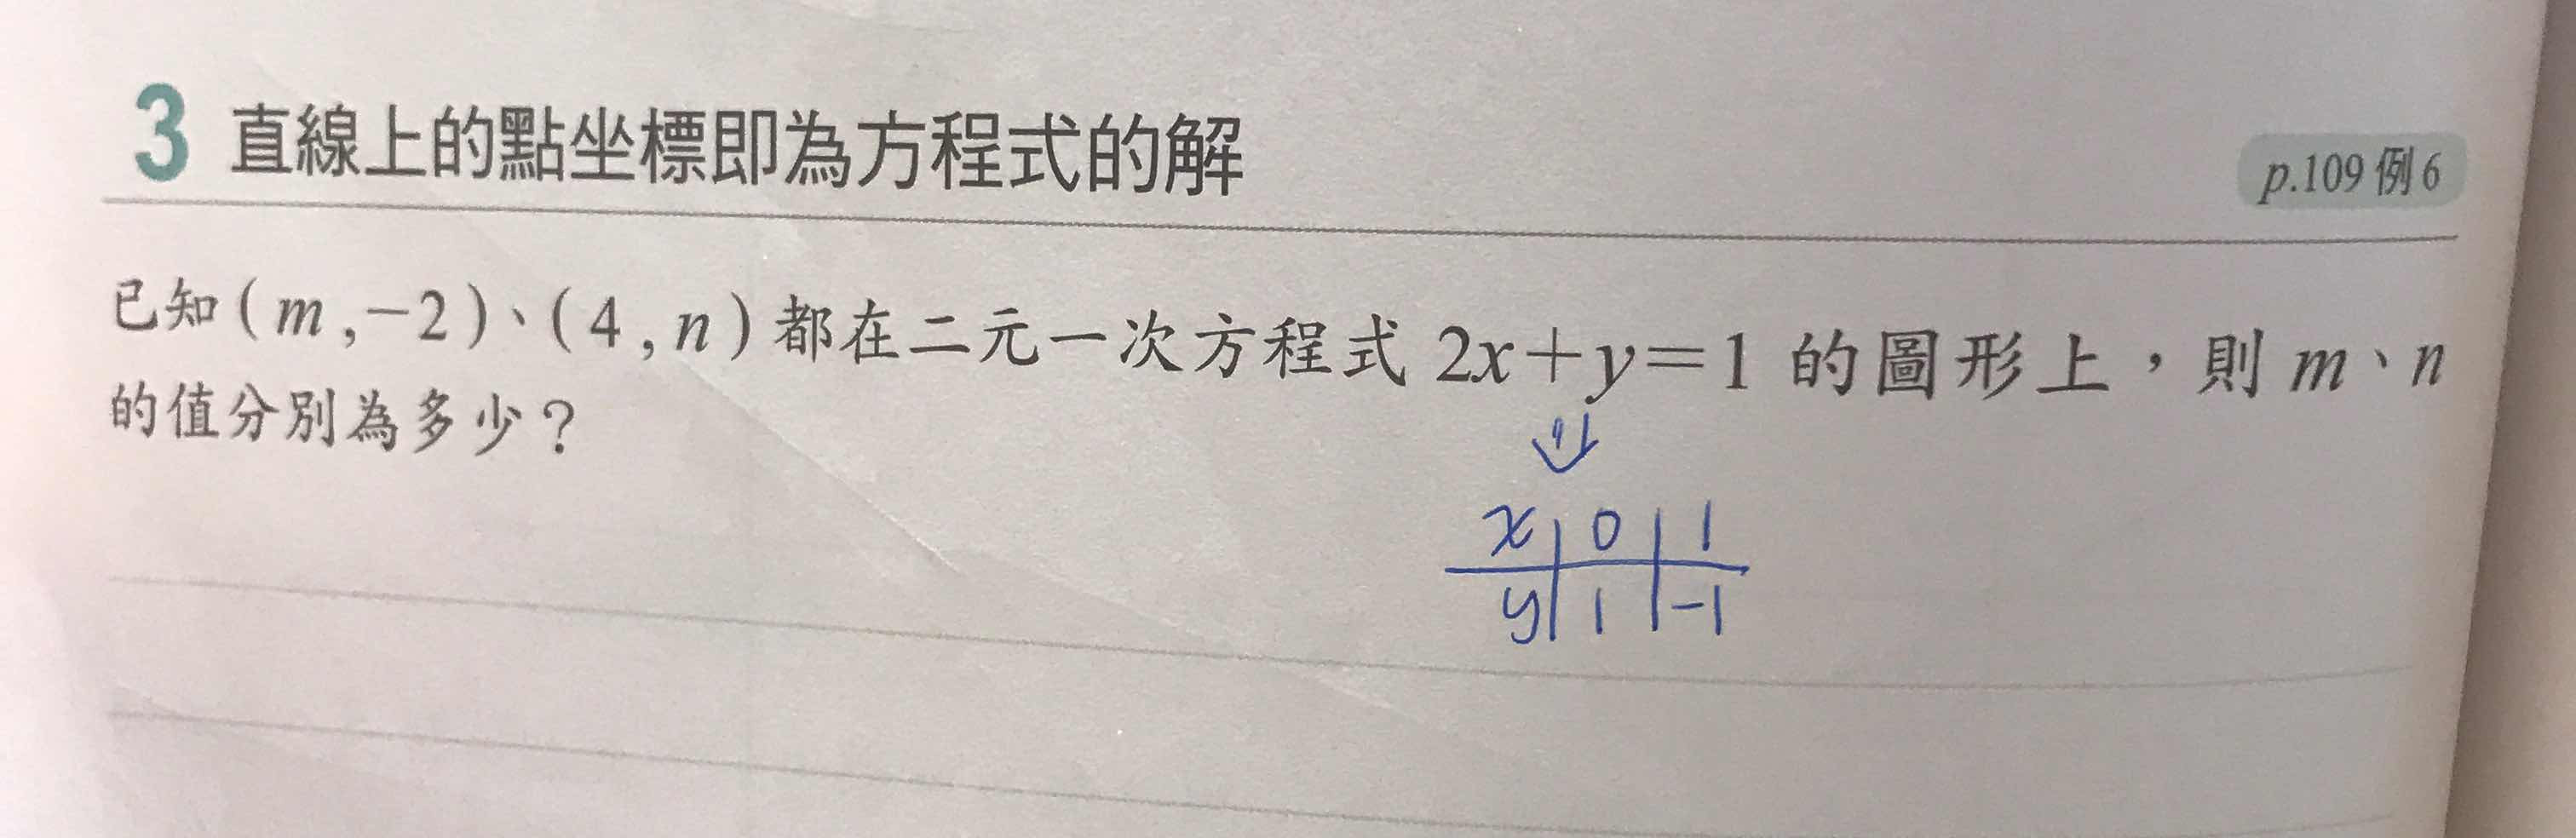 3 直線上的點坐標即為方程式的解
p.109 例6
已知(m,−2)、(4,n)都在二元一次方程式 2x+y=1 的圖形上,則 m、n
的值分別為多少?
x 0 1
y 1 -1